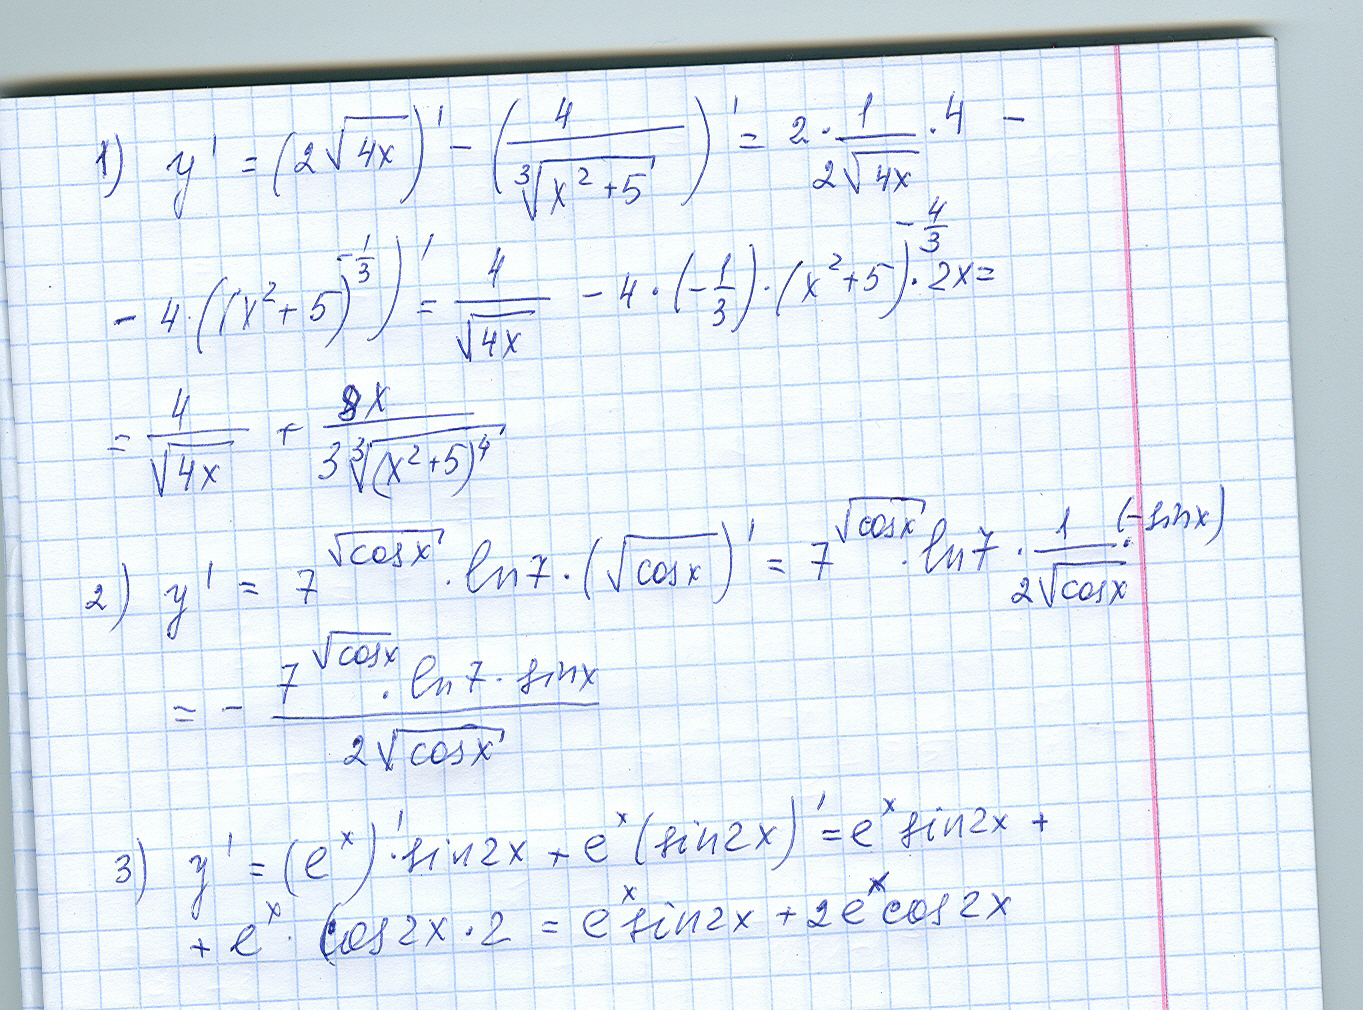 1) y' = (2√(4x))' - (4/∛(x²+5))' = 2·1/(2√(4x))·4 -
- 4·((x²+5)^(-1/3))' = 4/√(4x) - 4·(-1/3)·(x²+5)^(-4/3)·2x =
= 4/√(4x) + 8x/(3∛((x²+5)⁴))
2) y' = 7^(√(cosx))·ln7·(√(cosx))' = 7^(√(cosx))·ln7·1/(2√(cosx))·(-sinx)
= - (7^(√(cosx))·ln7·sinx)/(2√(cosx))
3) y' = (e^x)'·sin2x + e^x(sin2x)' = e^x sin2x +
+ e^x·cos2x·2 = e^x sin2x + 2e^x cos2x